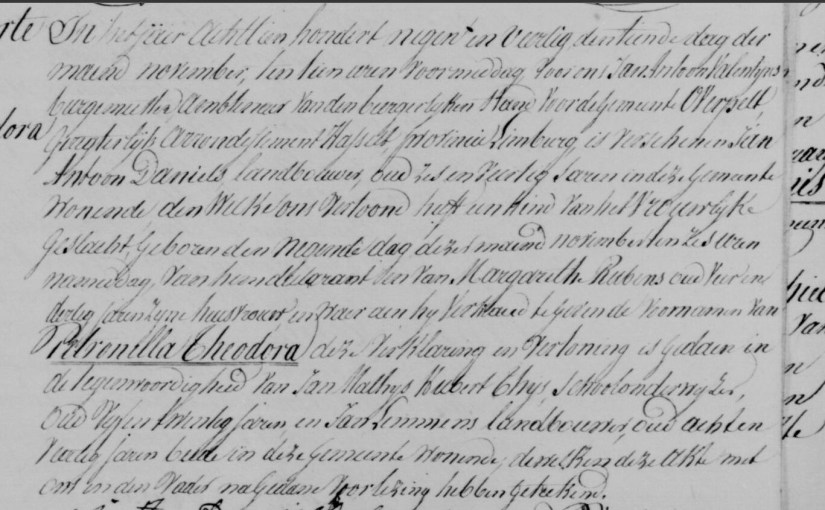 rte
dora
In het jaer achttien hondert negen en veertig den tiende dag der
maend november, ten tien uren voormiddag voor ons Jan Antoon Valentyns
burgemeester ambtenaer van den burgerlyken stand voor de gemeente Overpelt
gregterlyk arrondissement Hasselt, provincie Limburg, is verschenen Jan
Antoon Daniels, landbouwer, oud zes en veertig jaren in deze gemeente
wonende den welke ons vertoond heeft een kind van het vrouwelyke
geslacht, geboren den negende dag dezer maend november ten zes uren
namiddag, van hem declarant en van Margareth Rubens oud vier en
dertig jaren zyne huisvrouw en waer aen hy verklaerd te geven de voornamen van
Petronilla Theodora deze verklaring en vertoning is gedaen in
de tegenwoordigheid van Jan Mathys Hubert Thys, schoolonderwyzer,
oud vyf en twentig jaren, en Jan Lemmens landbouwer, oud acht en
veertig jaren beide in deze gemeente wonende, dewelken deze akte met
ons en den vader na gedane voorlezing hebben getekend.